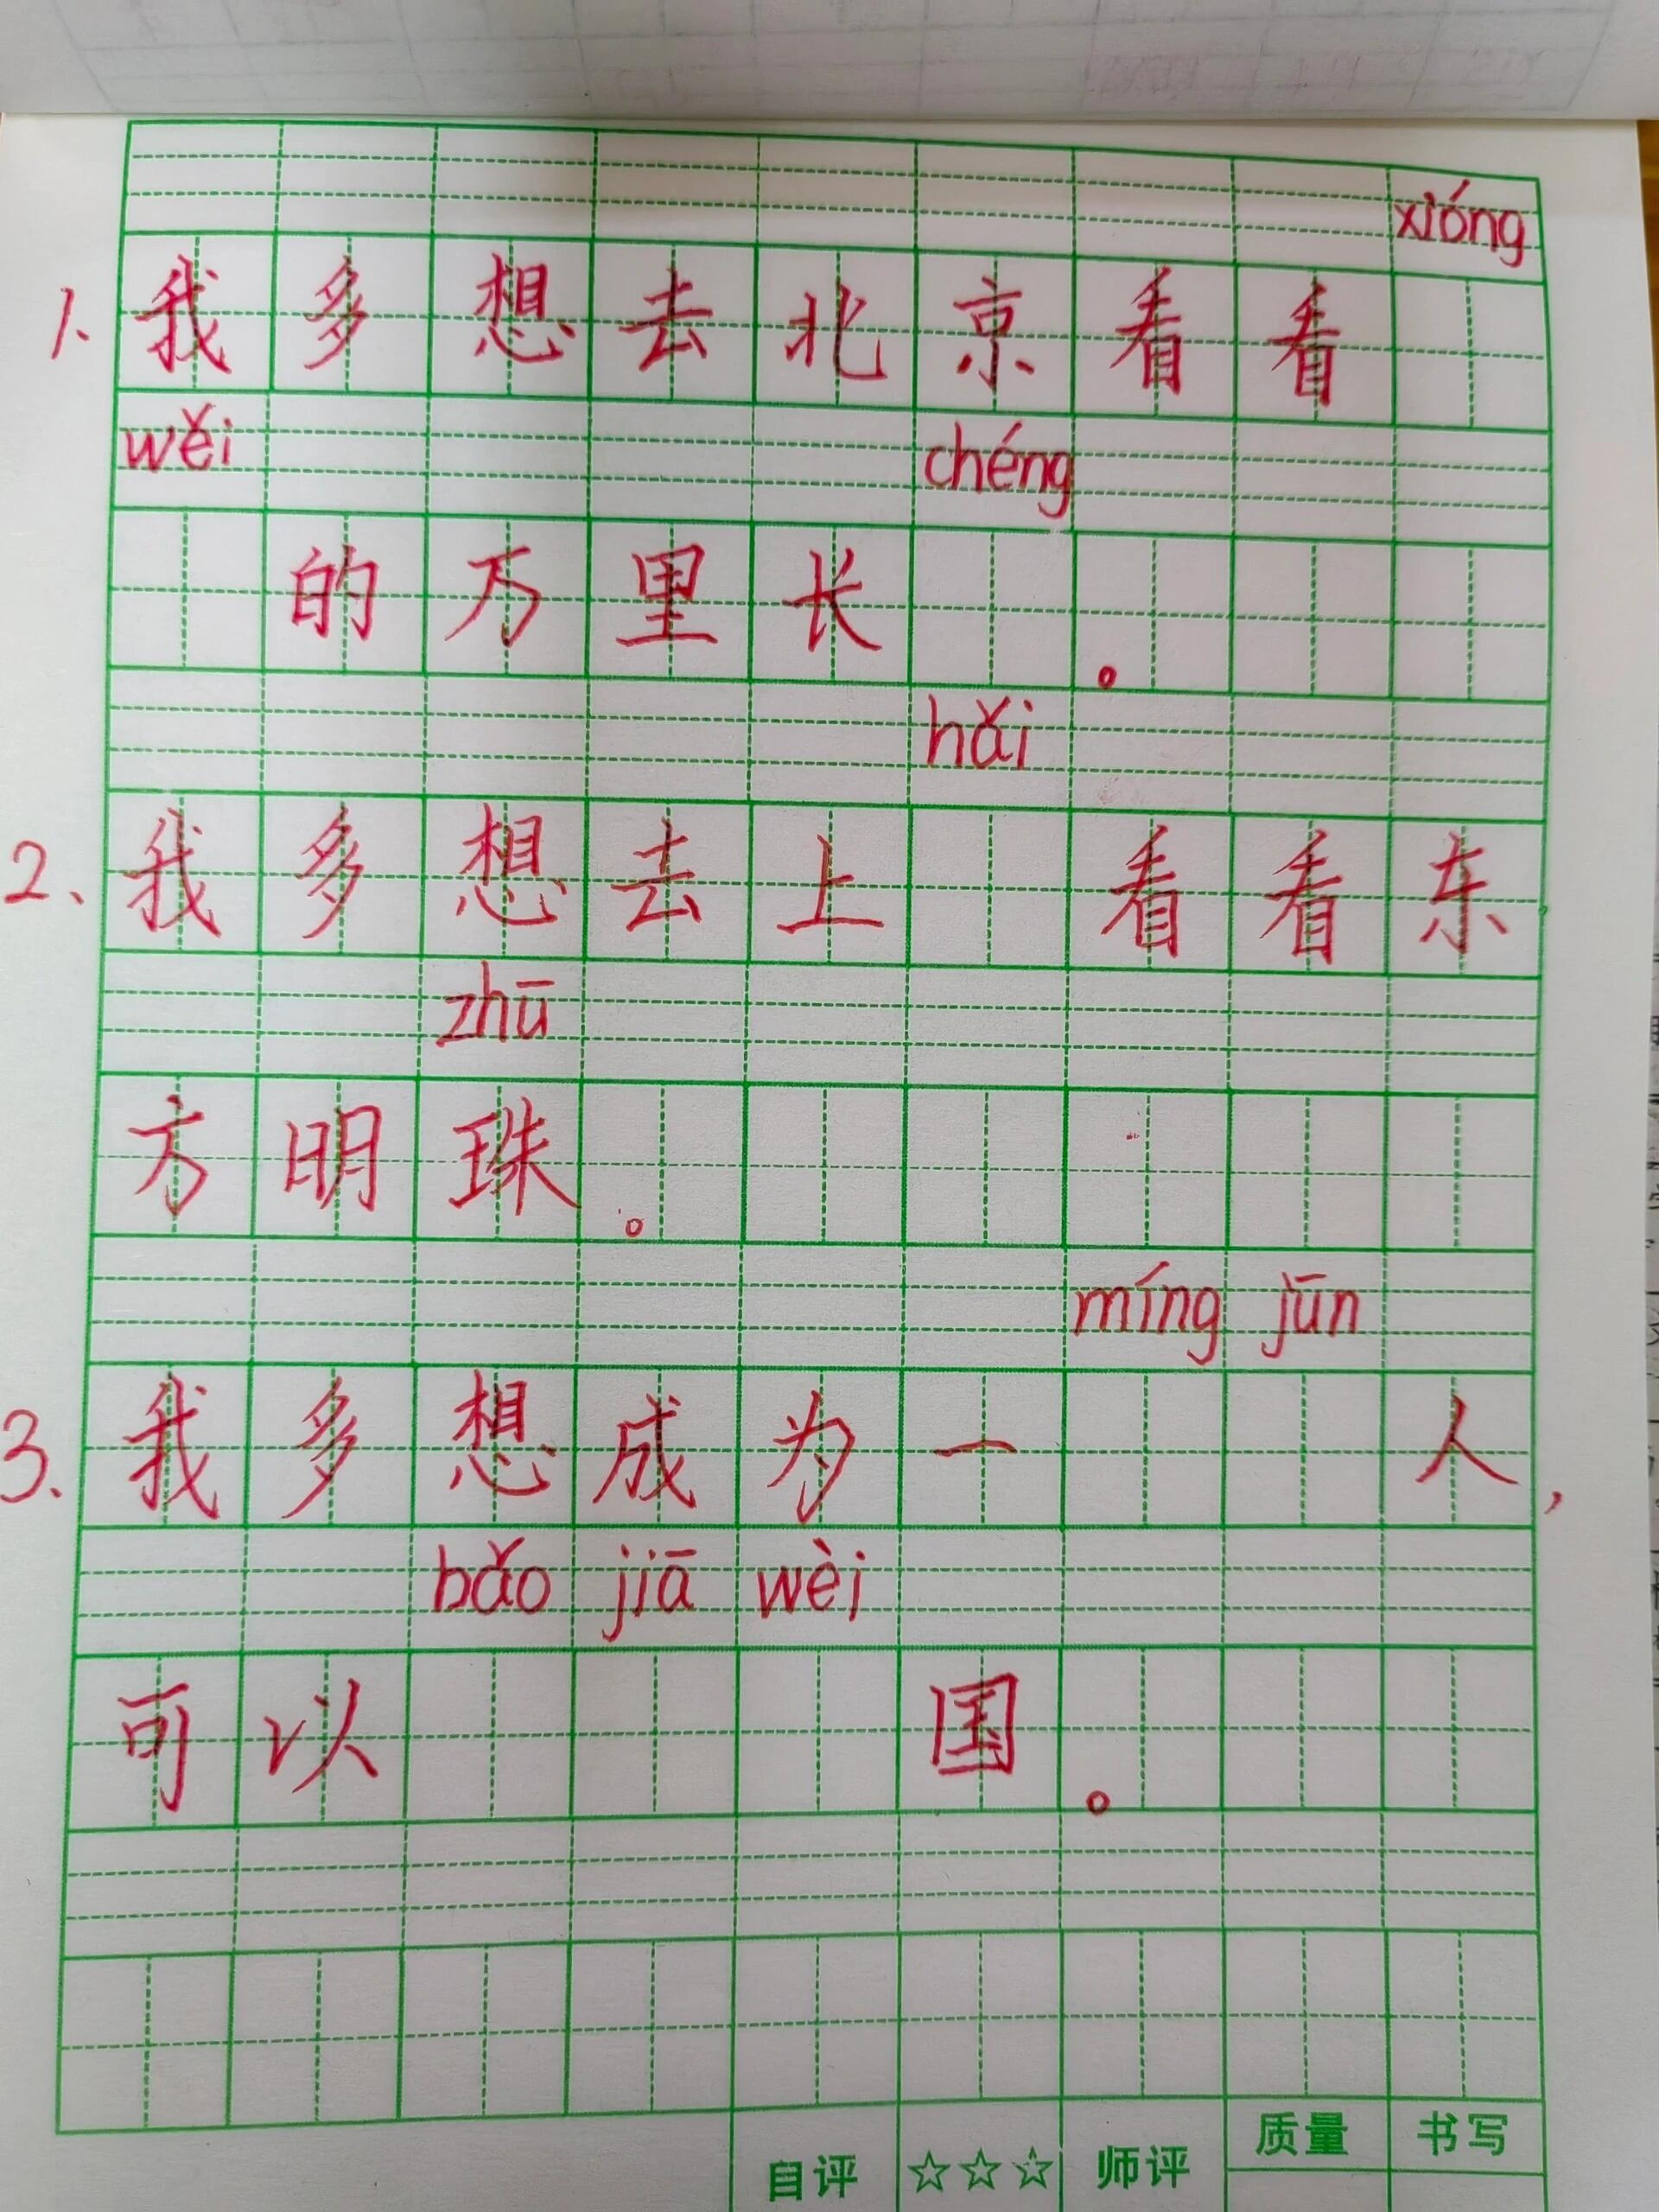 xióng
1. 我多想去北京看看
wěi chéng
的万里长。
hǎi
2、我多想去上 看看东
zhū
方明珠。
míng jūn
3. 我多想成为一 人，
bǎo jiā wèi
可以 国。
自评 ☆☆☆ 师评 质量 书写